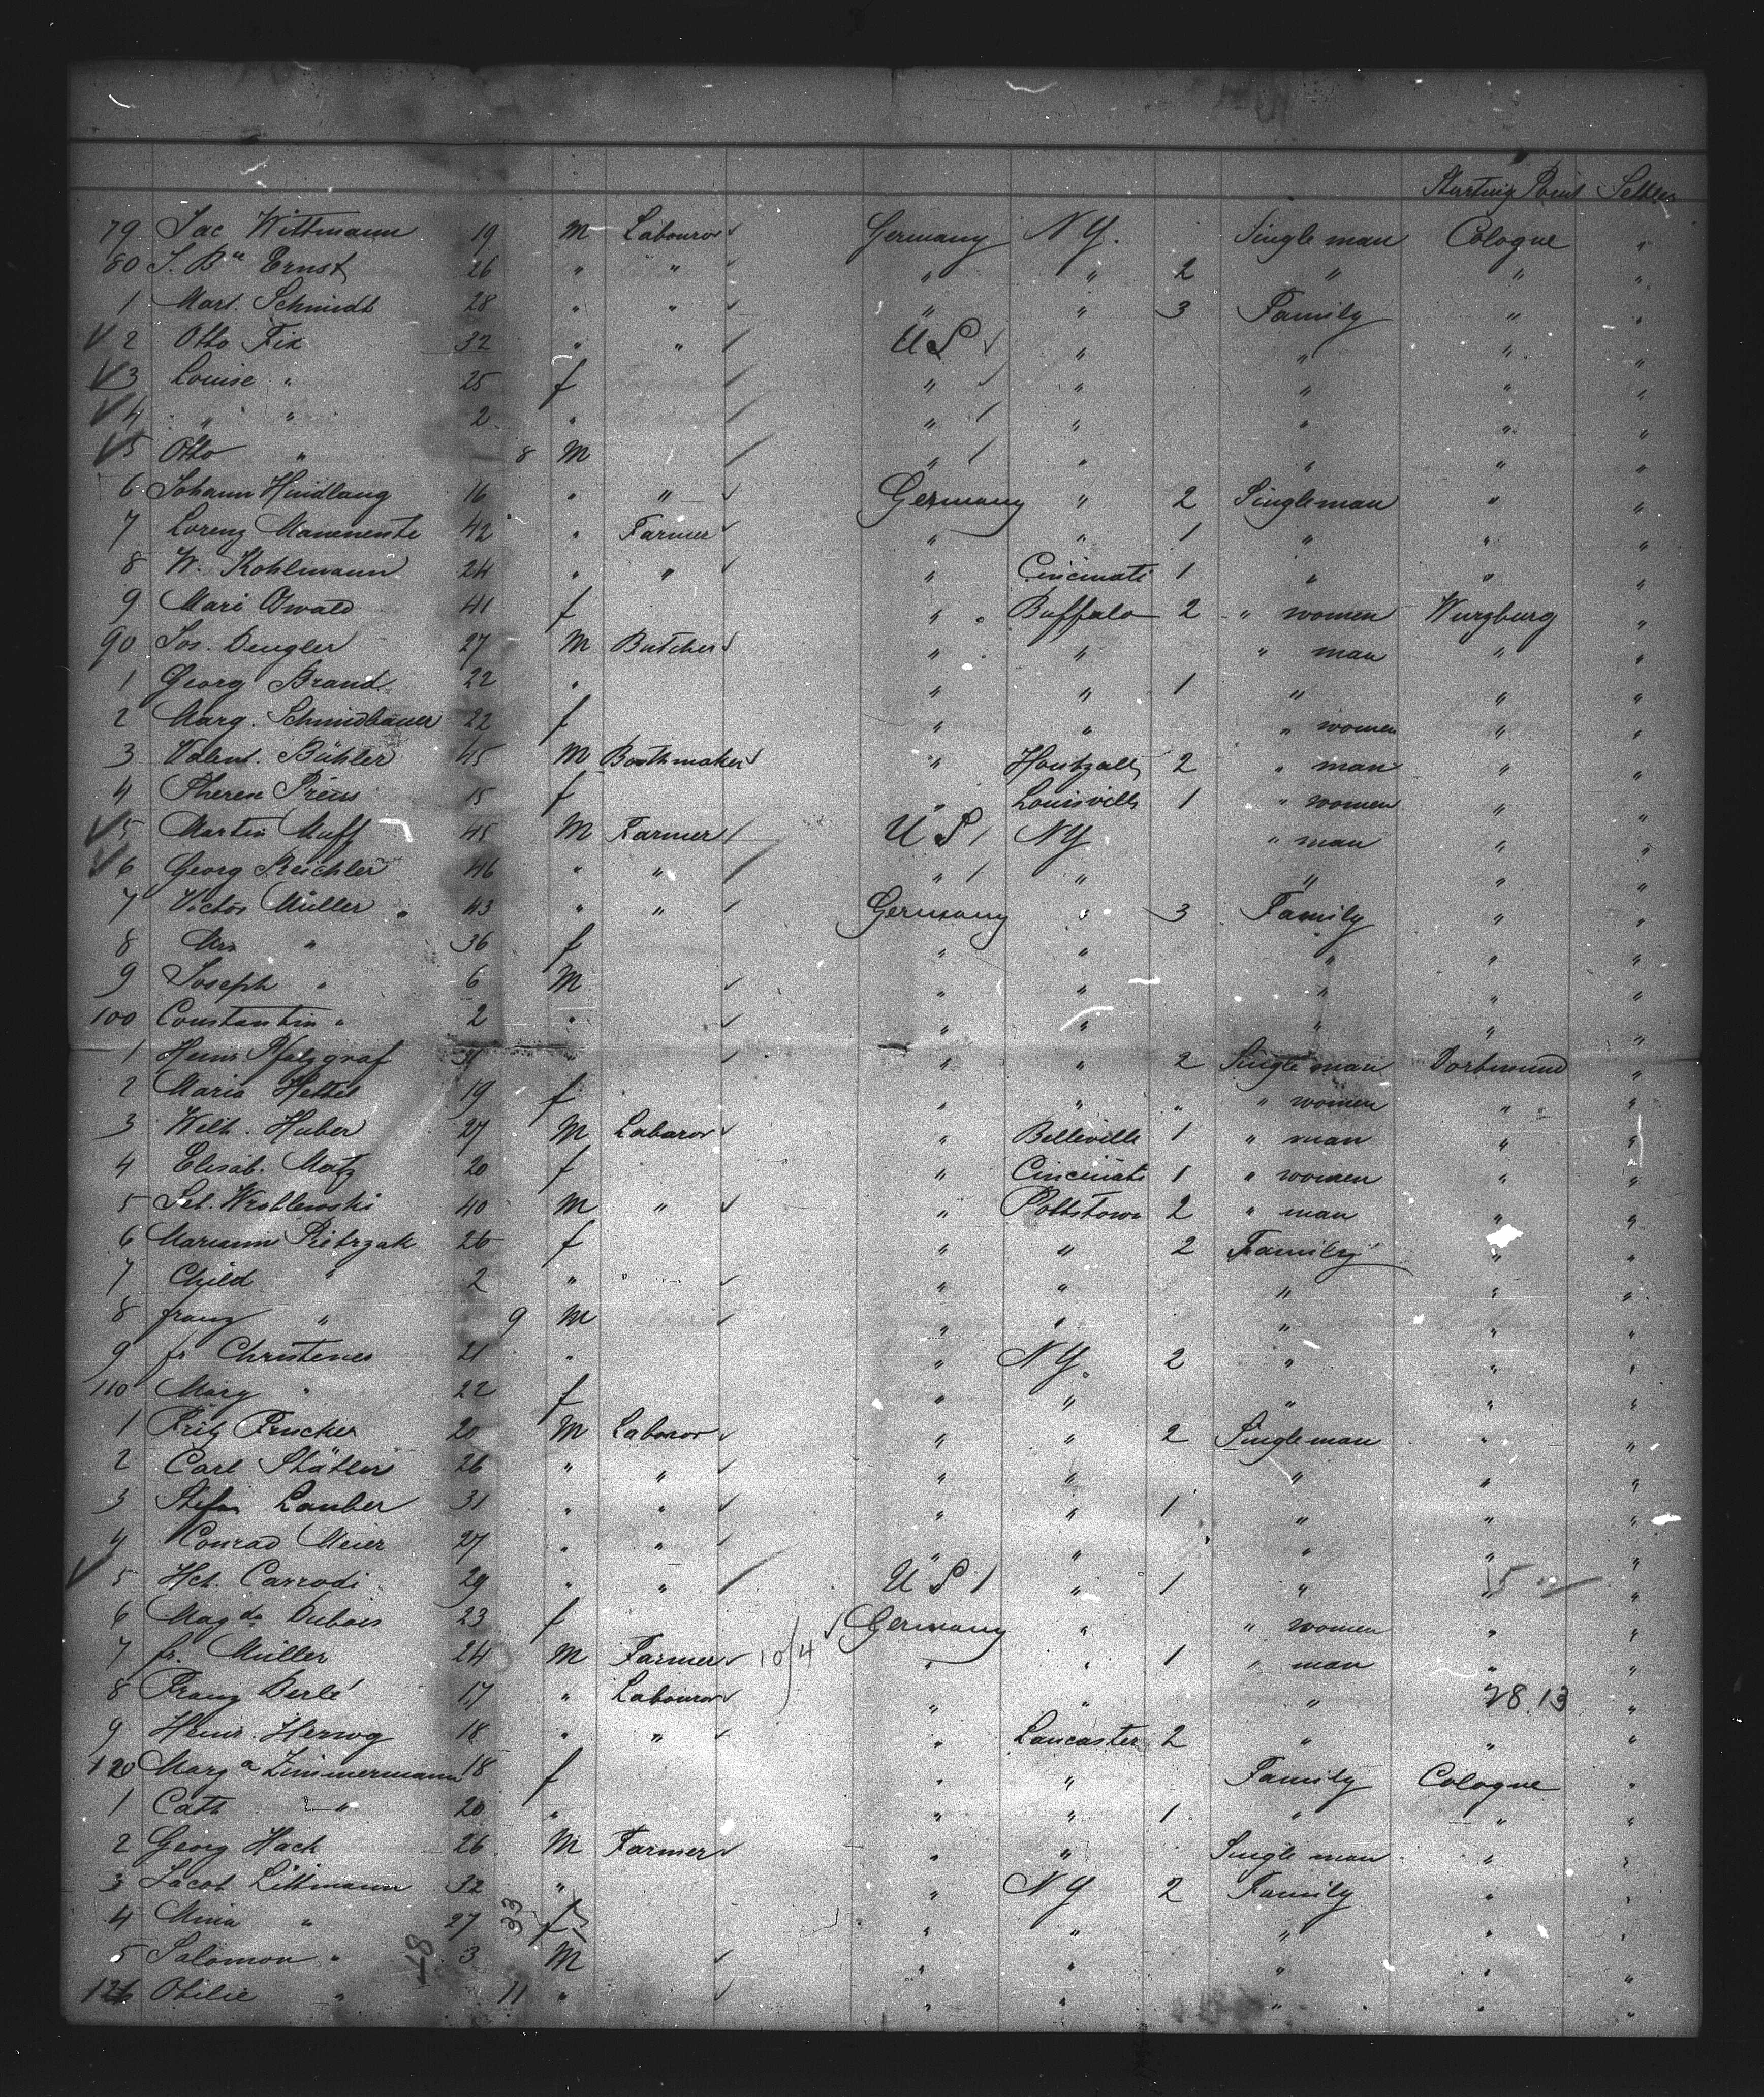 Starting Point Settler
79 Jac Wittmann 19 M Labourer Germany N Y. Single man Cologne "
80 J. Bn Ernst 26 " " " " 2 " " "
1 Mart. Schmidt 28 " " " " 3 Family " "
2 Otto Fix 32 " " U S " " " "
3 Louise " 25 f " " " " "
4 " " 2 " " " " " "
5 Otto " 8 M " " " " "
6 Johann Hindlang 16 " " Germany " 2 Single man " "
7 Lorenz Mammente 42 " Farmer " " 1 " " "
8 W. Kohlmann 24 " " " Cincinati 1 " " "
9 Mari Oswald 41 f " Buffalo 2 " women Wurzburg "
90 Jos. Dengler 27 M Butcher " " " man " "
1 Georg Brand 22 " " " 1 " " "
2 Marg. Schmidbauer 22 f " " " women " "
3 Valent. Bühler 45 M Boothmaker " 2 " man " "
4 Therese Preus 15 f " Louisville 1 " women " "
5 Martin Muff 45 M Farmer U S N Y " man " "
6 Georg Reichler 46 " " " " " " "
7 Victor Müller " 43 " " Germany " 3 Family " "
8 Mrs " 36 f " " " " "
9 Joseph " 6 M " " " " "
100 Constantin " 2 " " " " " "
1 Heinr. Pfalzgraf " " 2 Single man Dortmund "
2 Maria Hettel 19 f " " " " women " "
3 Wilh. Huber 27 M Laborer " Belleville 1 " man " "
4 Elisab. Motz 20 f " Cincinati 1 " women " "
5 Seb. Wroblewski 40 M " " Pottstown 2 " man " "
6 Mariann Pietrzak 26 f " " 2 Family " "
7 Child " 2 " " " " " "
8 franz " 9 M " " " " "
9 fr Christenes 21 " " N Y. 2 " " "
110 Marg " 22 f " " " " "
1 Fritz Prucker 20 M Laborer " " 2 Single man " "
2 Carl Stätler 26 " " " " " " "
3 Stefan Lauber 31 " " " " 1 " " "
4 Conrad Meier 27 " " " " " " "
5 Hch. Carrodi 29 " " U S " 1 " " "
6 Magda Dubois 23 f Germany " " women " "
7 fr. Müller 24 M Farmer 10/4 " " 1 " man " "
8 Franz Berlé 17 " Labourer " " " 28.13 "
9 Heinr. Herwog 18 " " " Lancaster 2 " " "
120 Marga Zimmermann 18 f " " Family Cologne "
1 Cath " 20 " " " 1 " " "
2 Georg Hack 26 M Farmer " " Single man " "
3 Jacob Littmann 32 " " N Y 2 Family " "
4 Mina " 27 33 f " " " " "
5 Salomon " 18 3 M " " " " "
126 Otilie " 11 " " " " " "